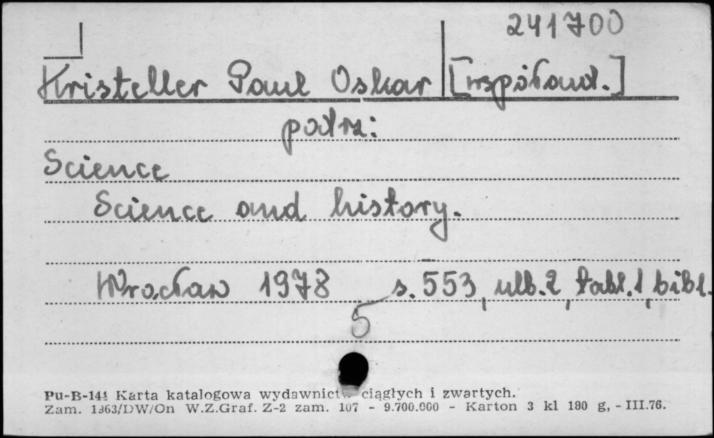 241700
Kristeller Paul Oskar [współaut.]
patrz:
Science
Science and history.
Wrocław 1978 s. 553, ulb. 2, tabl. 1, bibl.
5
Pu-B-141 Karta katalogowa wydawnictw ciągłych i zwartych.
Zam. 1363/DW/On W.Z.Graf. Z-2 zam. 107 - 9.700.000 - Karton 3 kl 180 g, - III.76.